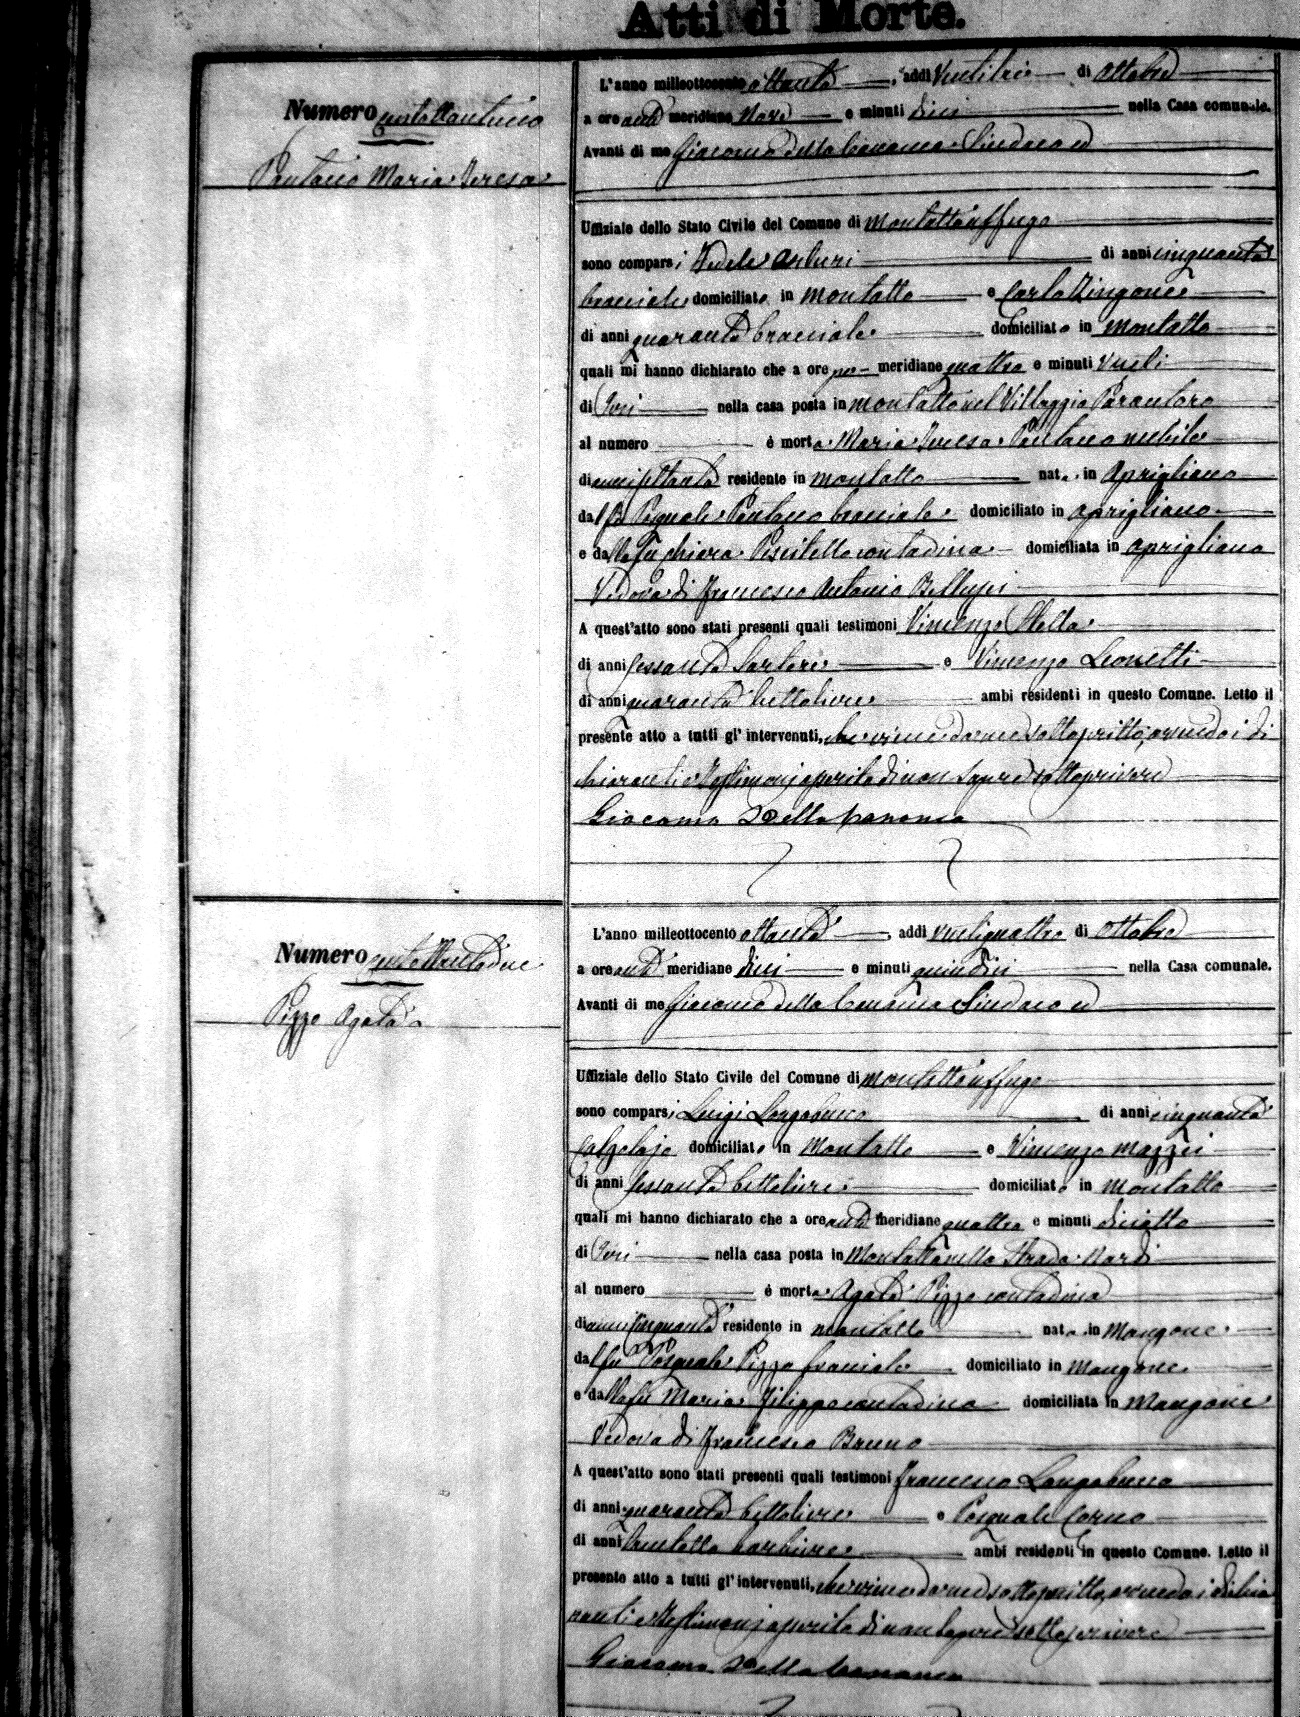 Atti di Morte.
Numero centottantuno
Pantano Maria Teresa
L'anno milleottocento ottanta, addi Ventitrè di Ottobre
a ore anti meridiane Nove e minuti dieci nella Casa comunale.
Avanti di me Giacomo della Cananea Sindaco ed
Uffiziale dello Stato Civile del Comune di Montaltouffugo
sono comparsi Fedele Arturi di anni cinquanta
bracciale domiciliato in Montalto e Carlo Zingone
di anni quaranta bracciale domiciliato in Montalto
quali mi hanno dichiarato che a ore po- meridiane quattro e minuti Venti
di Ieri nella casa posta in Montalto nel Villaggio Parantoro
al numero è morta Maria Teresa Pantano nubile
di anni settanta residente in Montalto nata in Aprigliano
dal fu Pasquale Pantano bracciale domiciliato in Aprigliano
e dalla fu Chiara Piscitello contadina domiciliata in Aprigliano
Vedova di Francesco Antonio Bellusci
A quest'atto sono stati presenti quali testimoni Vincenzo Stella
di anni sessanta Sartore e Vincenzo Leonetti
di anni quaranta bettoliere ambi residenti in questo Comune. Letto il
presente atto a tutti gl'intervenuti, che viene da me sottoscritto, avendo i di
chiaranti e Testimonj asserito di non sapere sottoscrivere
Giacomo Della Cananea
Numero centottantadue
Pizzo Agata
L'anno milleottocento ottanta, addi ventiquattro di Ottobre
a ore anti meridiane dieci e minuti quindici nella Casa comunale.
Avanti di me Giacomo della Cananea Sindaco ed
Uffiziale dello Stato Civile del Comune di Montaltouffugo
sono comparsi Luigi Longobucco di anni cinquanta
Calzolajo domiciliato in Montalto e Vincenzo Mazzei
di anni sessanta bettoliere domiciliato in Montalto
quali mi hanno dichiarato che a ore anti meridiane quattro e minuti diciotto
di Ieri nella casa posta in Montalto nella Strada Nardi
al numero è morta Agata Pizzo contadina
di anni cinquanta residente in Montalto nata in Mangone
dal fu Pasquale Pizzo bracciale domiciliato in Mangone
e dalla fu Maria Filippo contadina domiciliata in Mangone
Vedova di Francesco Bruno
A quest'atto sono stati presenti quali testimoni Francesco Longobucco
di anni quaranta bettoliere e Pasquale Corno
di anni Ventotto barbiere ambi residenti in questo Comune. Letto il
presente atto a tutti gl'intervenuti, che viene da me sottoscritto, avendo i dichia
ranti e Testimonj asserito di non sapere sottoscrivere
Giacomo Della Cananea